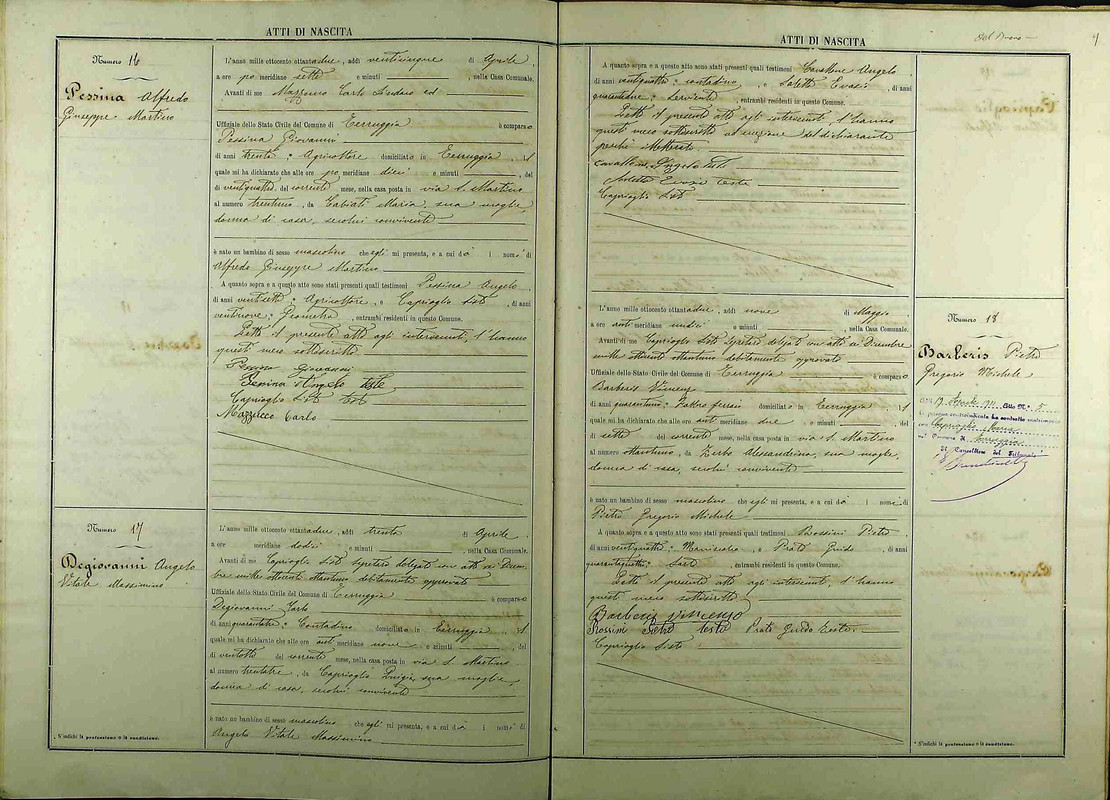 ATTI DI NASCITA
Numero 16
Pessina Alfredo
Giuseppe Martino
L'anno mille ottocento ottantadue, addì venticinque di Aprile,
a ore po meridiane sette e minuti, nella Casa Comunale.
Avanti di me Mazzucco Carlo Sindaco ed
Uffiziale dello Stato Civile del Comune di Terruggia è comparso
Pessina Giovanni
di anni trenta: Agricoltore domiciliato in Terruggia, il
quale mi ha dichiarato che alle ore po meridiane dieci e minuti, del
dì ventiquattro del corrente mese, nella casa posta in via S. Martino
al numero trentuno, da Cabiati Maria, sua moglie,
donna di casa, secolui convivente
è nato un bambino di sesso mascolino che egli mi presenta, e a cui dà i nomi di
Alfredo Giuseppe Martino
A quanto sopra e a questo atto sono stati presenti quali testimoni Pessina Angelo,
di anni ventisette: Agricoltore, e Caprioglio Sisto, di anni
ventinove: Geometra, entrambi residenti in questo Comune.
Letto il presente atto agli intervenuti, l'hanno
questi meco sottoscritto
Pessina Giovanni
Pesina Angelo Teste
Caprioglio Sisto Teste
Mazzucco Carlo
Numero 17
Degiovanni Angelo
Vitale Massimino
L'anno mille ottocento ottantadue, addì trenta di Aprile,
a ore meridiane dodici e minuti, nella Casa Comunale.
Avanti di me Caprioglio Sisto Segretario delegato con atto sei Dicem-
bre mille ottocento ottantuno debitamente approvato
Uffiziale dello Stato Civile del Comune di Terruggia è comparso
Degiovanni Carlo
di anni quarantatre: Contadino domiciliato in Terruggia, il
quale mi ha dichiarato che alle ore ant meridiane nove e minuti, del
dì ventotto del corrente mese, nella casa posta in via S. Martino
al numero trentatre, da Caprioglio Luigia, sua moglie,
donna di casa, secolui convivente
è nato un bambino di sesso mascolino che egli mi presenta, e a cui dà i nomi di
Angelo Vitale Massimino
* S'indichi la professione o la condizione.
ATTI DI NASCITA
A quanto sopra e a questo atto sono stati presenti quali testimoni Cavallone Angelo,
di anni ventiquattro: contadino, e Saletta Evasio, di anni
quarantadue: Serviente, entrambi residenti in questo Comune.
Letto il presente atto agli intervenuti, l'hanno
questi meco sottoscritto ad eccezione del dichiarante
perchè illetterato
Cavallone Angelo teste
Saletta Evasio Teste
Caprioglio Sisto
L'anno mille ottocento ottantadue, addì nove di Maggio,
a ore anti meridiane undici e minuti, nella Casa Comunale.
Avanti di me Caprioglio Sisto Segretario delegato con atto sei Dicembre
mille ottocento ottantuno debitamente approvato
Uffiziale dello Stato Civile del Comune di Terruggia è comparso
Barberis Vincenzo
di anni quarantuno: domiciliato in Terruggia, il
quale mi ha dichiarato che alle ore ant meridiane due e minuti, del
dì sette del corrente mese, nella casa posta in via S. Martino
al numero ottantuno, da Zerbo Alessandrina, sua moglie,
donna di casa, secolui convivente
è nato un bambino di sesso mascolino che egli mi presenta, e a cui dà i nomi di
Pietro Gregorio Michele
A quanto sopra e a questo atto sono stati presenti quali testimoni Rossini Pietro,
di anni ventiquattro: Maniscalco, e Prati Guido, di anni
quarantaquattro: Sarto, entrambi residenti in questo Comune.
Letto il presente atto agli intervenuti, l'hanno
questi meco sottoscritto
Barberis Vincenzo
Rossini Pietro teste Prati Guido Teste
Caprioglio Sisto
Numero 18
Barberis Pietro
Gregorio Michele
Atto N. 5
Caprioglio Maria
nel Comune di Terruggia
Il Cancelliere del Tribunale
* S'indichi la professione o la condizione.